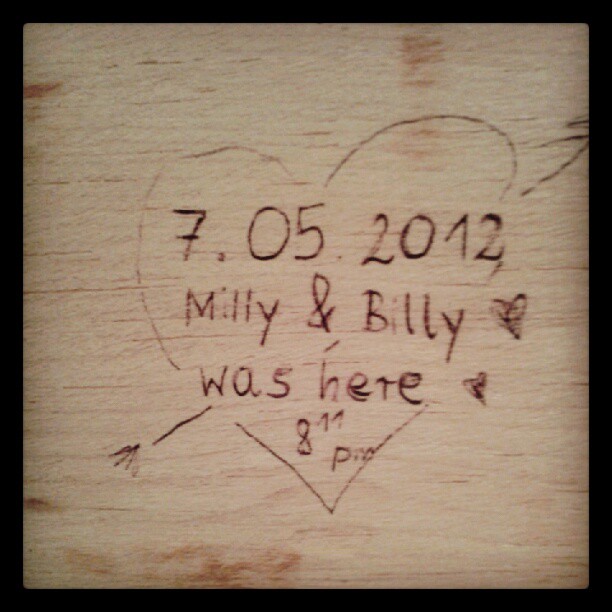 7.05.2012
Milly & Billy
was here
8 11
pm